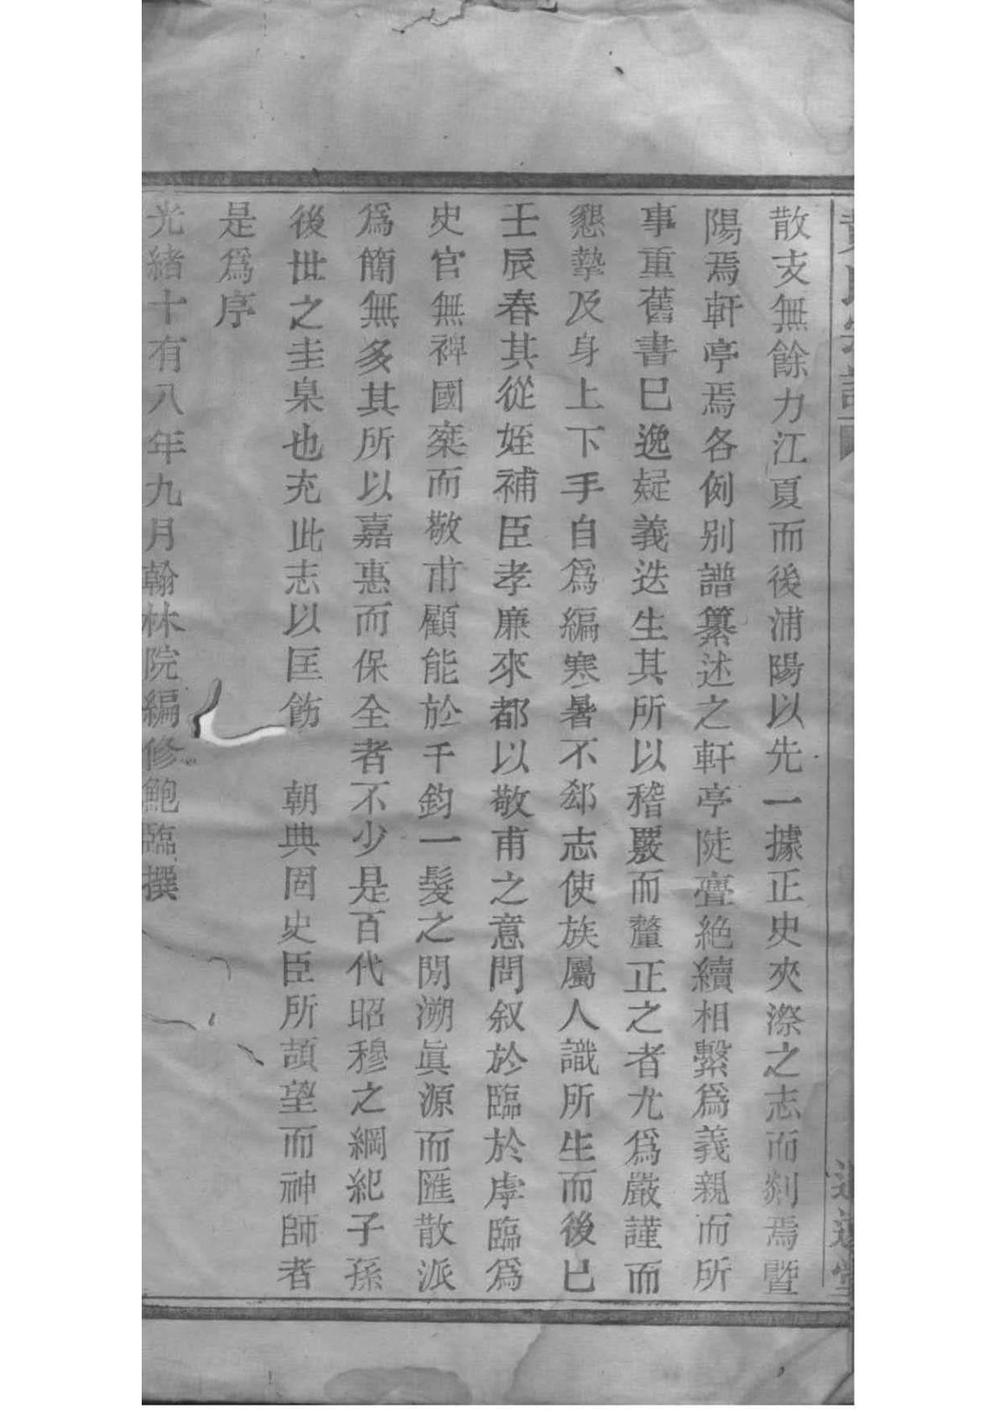 散支無餘力江夏而後浦陽以先一據正史夾漈之志而剡焉暨
陽焉軒亭焉各例別譜纂述之軒亭陡亹絶續相繫爲義親而所
事重舊書巳逸疑義迭生其所以稽覈而釐正之者尤爲嚴謹而
懇摯及身上下手自爲編寒暑不郄志使族屬人識所生而後已
壬辰春其從姪補臣孝廉來都以敬甫之意問叙於臨於虖臨爲
史官無裨國案而敬甫顧能於千鈞一髮之閒溯眞源而匯散派
爲簡無多其所以嘉惠而保全者不少是百代昭穆之綱紀子孫
後世之圭臬也充此志以匡飭　朝典固史臣所頡望而神師者
是爲序
光緒十有八年九月翰林院編修鮑臨撰